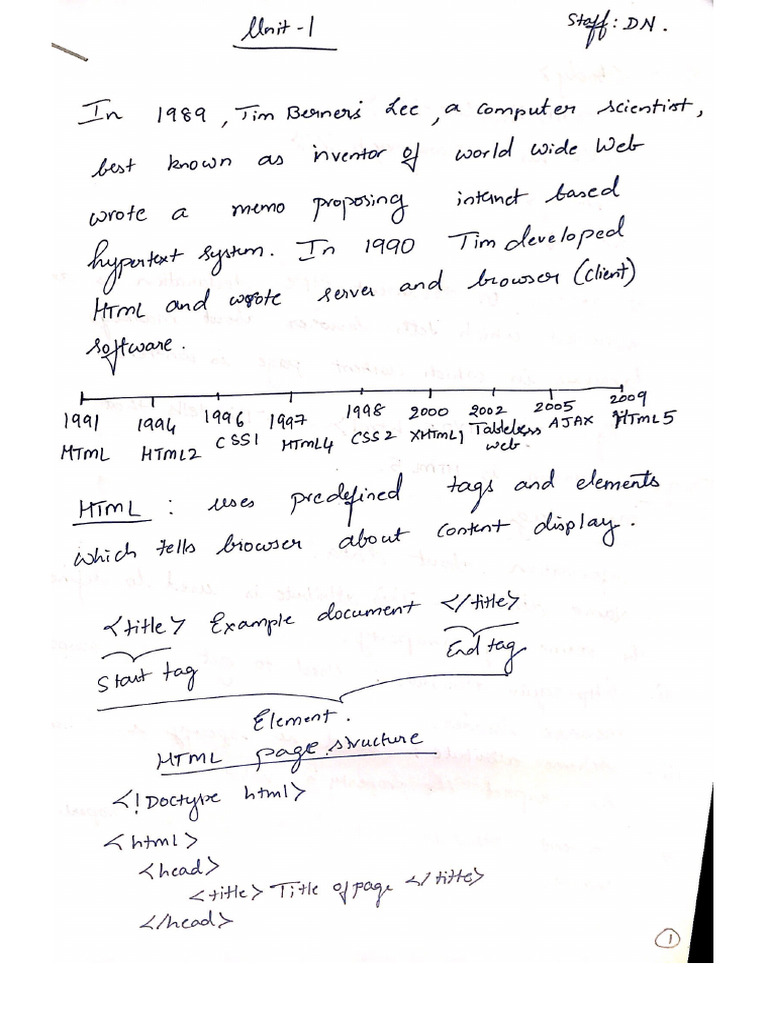 Unit -1
Staff: DN.
In 1989, Tim Berner's Lee, a computer scientist,
best known as inventor of world wide Web
wrote a memo proposing internet based
hypertext system. In 1990 Tim developed
HTML and wrote server and browser (client)
software.
1991 1994 1996 1997 1998 2000 2002 2005 2009
HTML HTML2 CSS1 HTML4 CSS2 XHTML1 Tableless web. AJAX HTML5
HTML : uses predefined tags and elements
which tells browser about content display.
<title> Example document </title>
Start tag End tag
Element.
HTML page structure
<!Doctype html>
<html>
<head>
<title> Title of page </title>
</head>
1